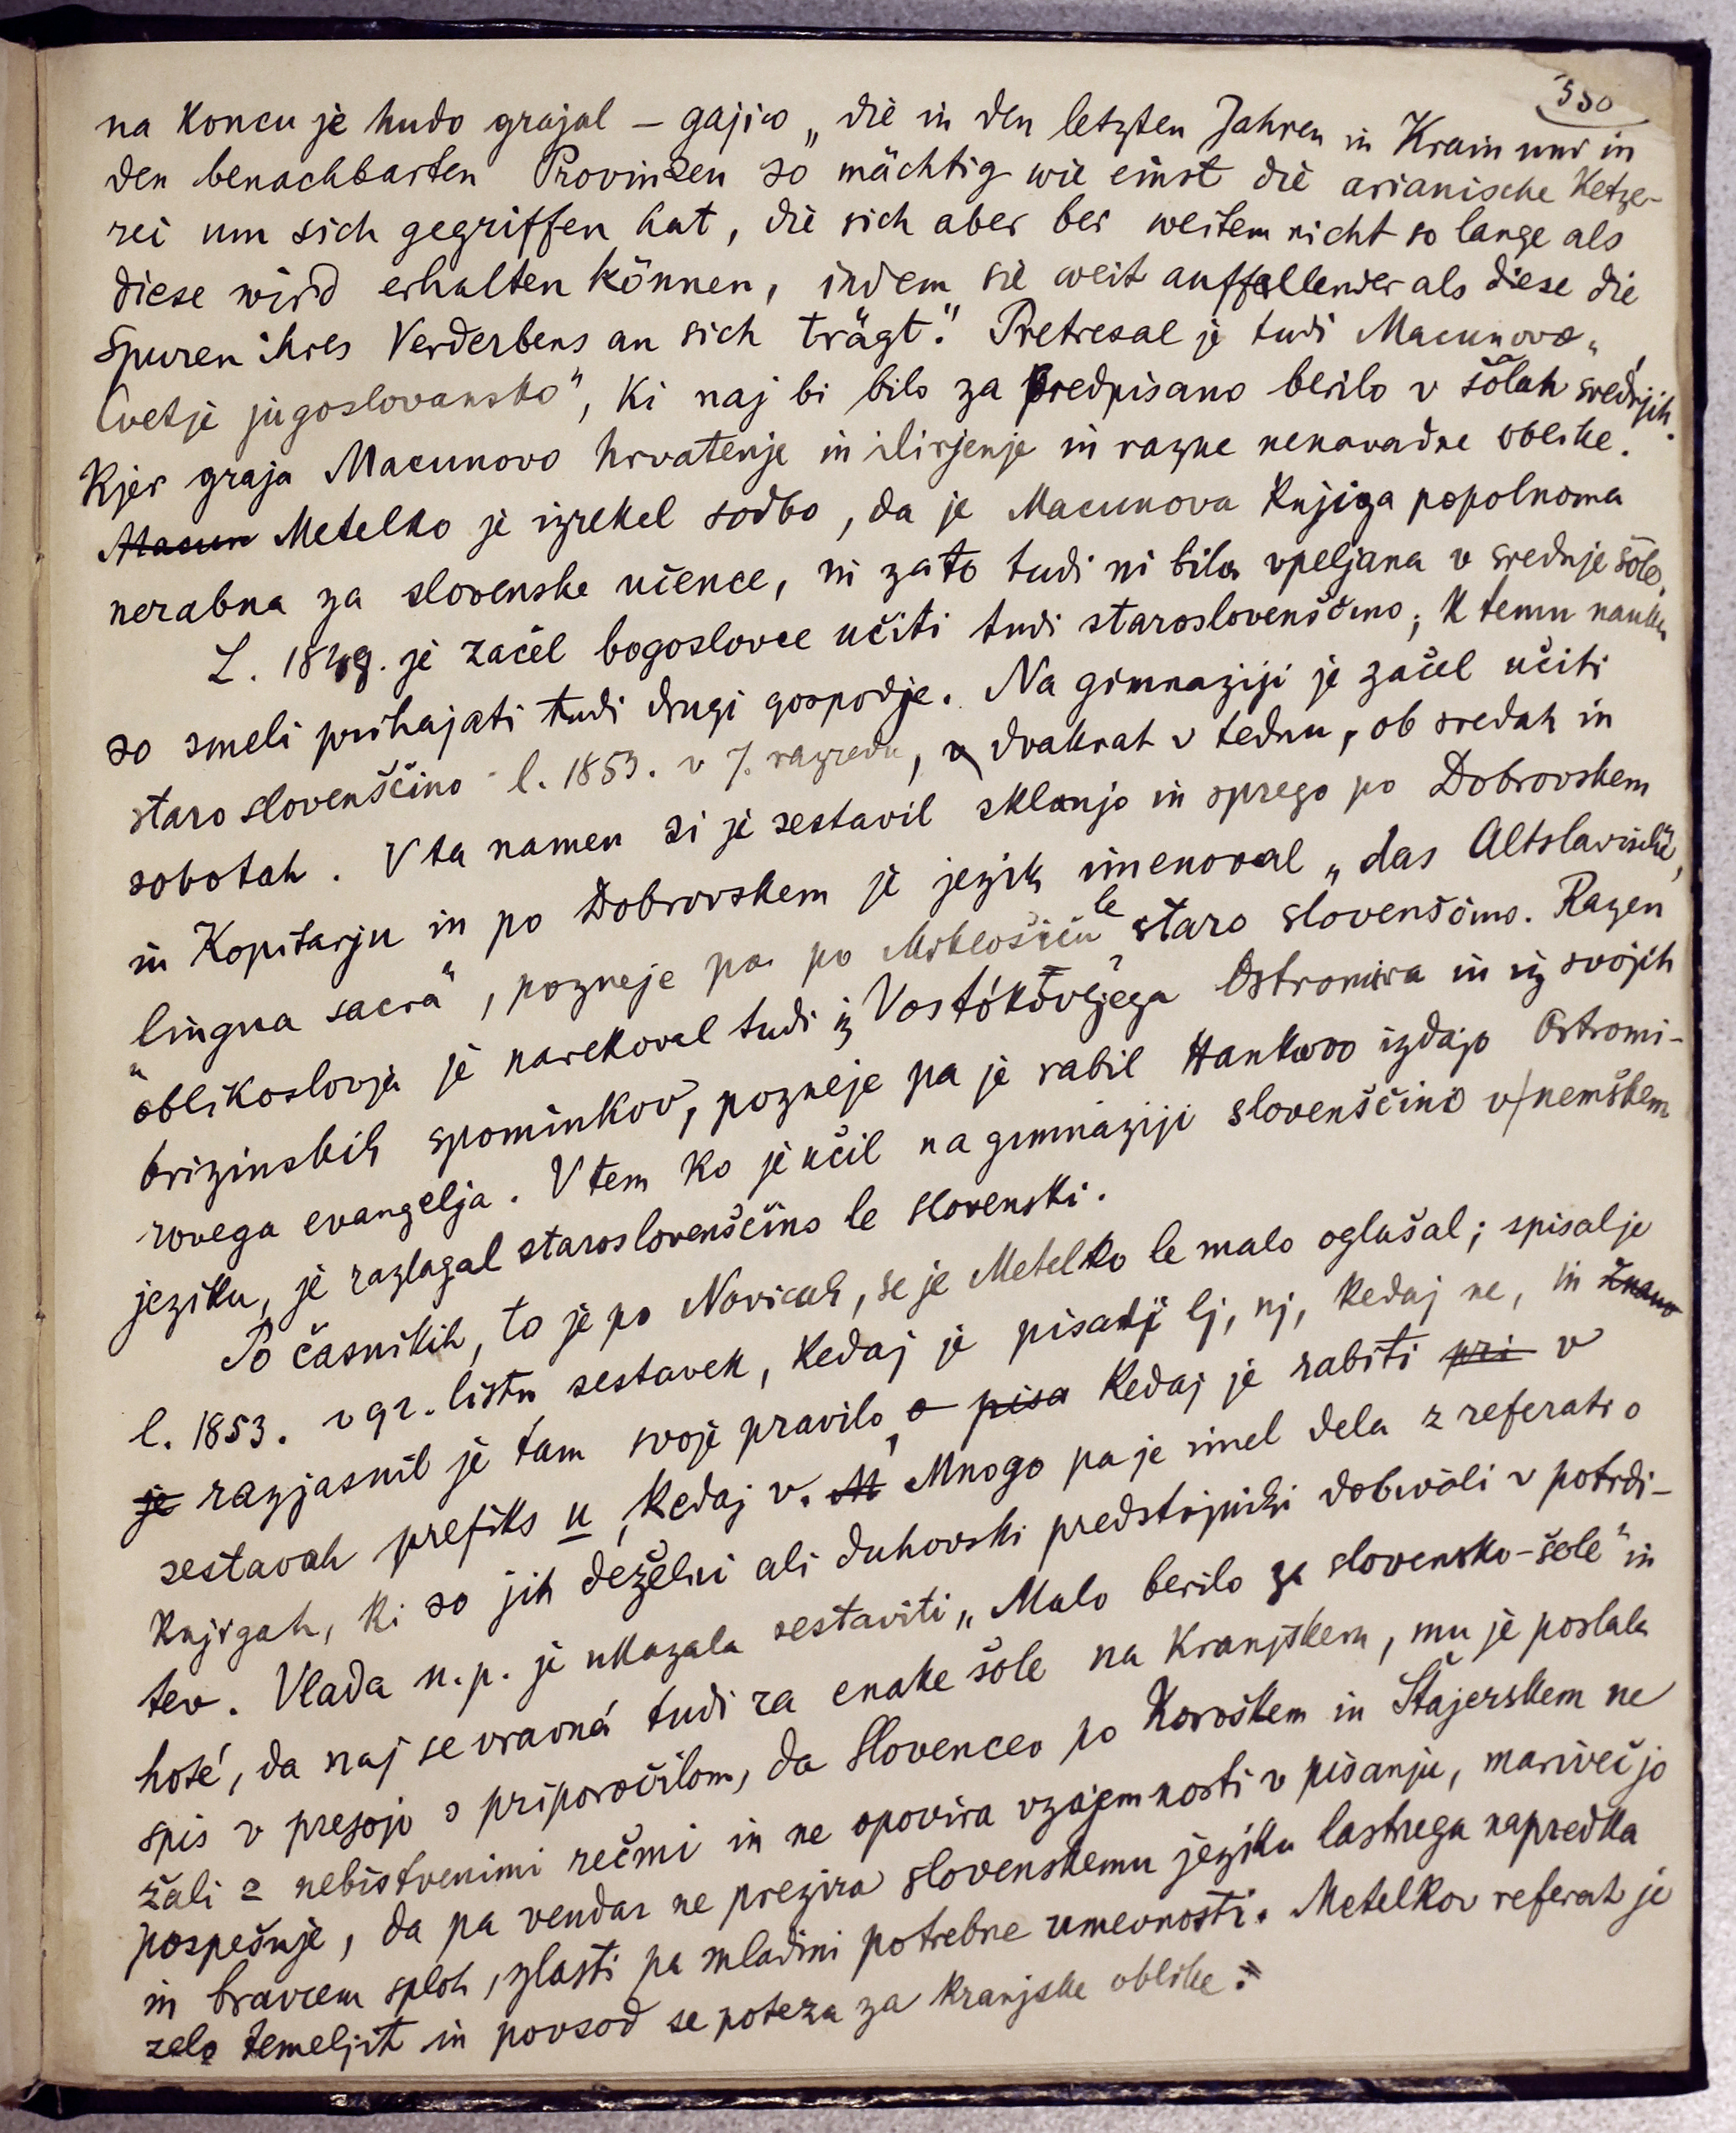 550
na koncu je hudo grajal – gajico „die in den letzten Jahren in Krain und in
den benachbarten Provinzen so mächtig wie einst die arianische Ketze-
rei um sich gegriffen hat, die sich aber bei weitem nicht so lange als
diese wird erhalten können, indem sie weit auffallender als diese die
Spuren ihres Verderbens an sich trägt." Pretresal je tudi Macunovo „
Cvetje jugoslovansko", ki naj bi bilo za predpisano berilo v šolah srednjih.
Kjer graja Macunovo hrvatenje in ilirjenje in razne nenavadne oblike.
Macun Metelko je izrekel sodbo, da je Macunova knjiga popolnoma
nerabna za slovenske učence, in zato tudi ni bila vpeljana v srednje šole.
L. 1849. je začel bogoslovce učiti tudi staroslovenščino; k temu nauku
so smeli prihajati tudi drugi gospodje. Na gimnaziji je začel učiti
staroslovenščino l. 1853. v 7. razredu, v dvakrat v tednu, ob sredah in
sobotah. V ta namen si je sestavil sklanjo in sprego po Dobrovskem
in Kopitarju in po Dobrovskem je jezik imenoval „das Altslavische,
lingua sacra", pozneje pa po Miklošiču le staro slovenščino. Razen
oblikoslovja je narekoval tudi iz Vostókovljega Ostromira in iz svojih
brizinskih spominkov, pozneje pa je rabil Hankovo izdajo Ostromi-
rovega evangelja. V tem ko je učil na gimnaziji slovenščino v nemškem
jeziku, je razlagal staroslovenščino le slovenski.
Po časnikih, to je po Novicah, se je Metelko le malo oglašal; spisal je
l. 1853. v 92. listu sestavek, kedaj je pisati lj, nj, kedaj ne, in znano
je razjasnil je tam svoje pravilo, o pisa kedaj je rabiti pri v
sestavah prefiks u, kedaj v. M Mnogo pa je imel dela z referati o
knjigah, ki so jih deželni ali duhovski predstojniki dobivali v potrdi-
tev. Vlada n. p. je ukazala sestaviti „Malo berilo za slovensko-šole" in
hoté, da naj se vravná tudi za enake šole na Kranjskem, mu je poslala
spis v presojo s priporočilom, da Slovencev po Koroškem in Štajerskem ne
žali z nebistvenimi rečmi in ne opovira vzajemnosti v pisanju, marveč jo
pospešuje, da pa vendar ne prezira slovenskemu jeziku lastnega napredka
in bravcem sploh, zlasti pa mladini potrebne umevnosti. Metelkov referat je
zelo temeljit in povsod se poteza za kranjske oblike.